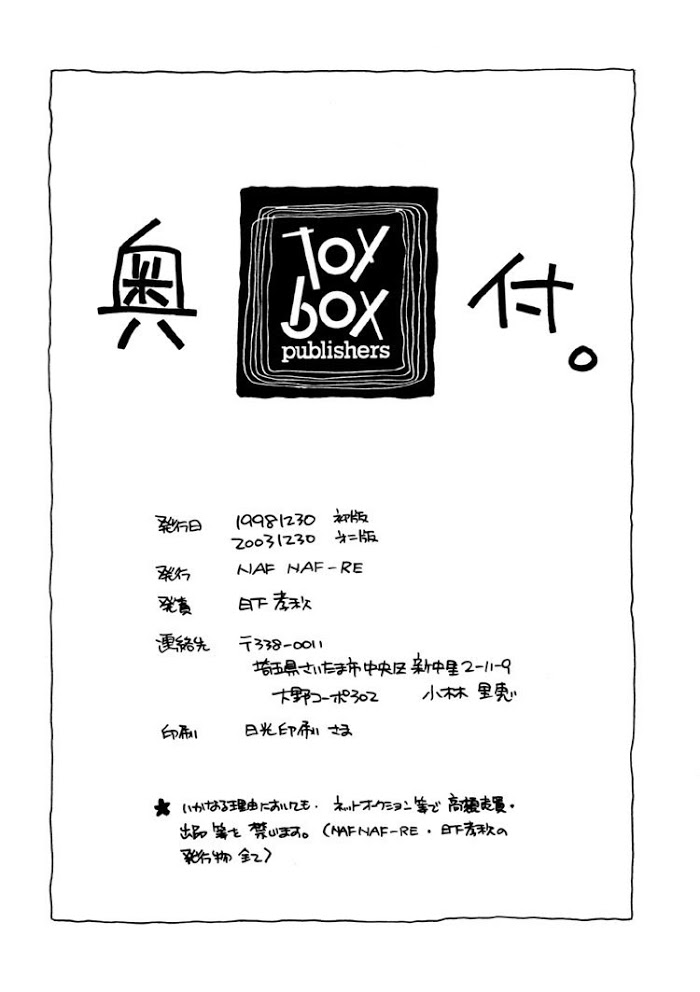 奥付。
Toy
box
publishers
発行日 19981230 初版
20031230 才二版
発行 NAF NAF-RE
発責 日下孝秋
連絡先 〒338-0011
埼玉県さいたま市中央区新中里2-11-9
大野コーポ302 小林 里恵
印刷 日光印刷 さま
★ いかなる理由においても、ネットオークション等で高額売買・
出品等を禁じます。(NAFNAF-RE・日下孝秋の
発行物全て)